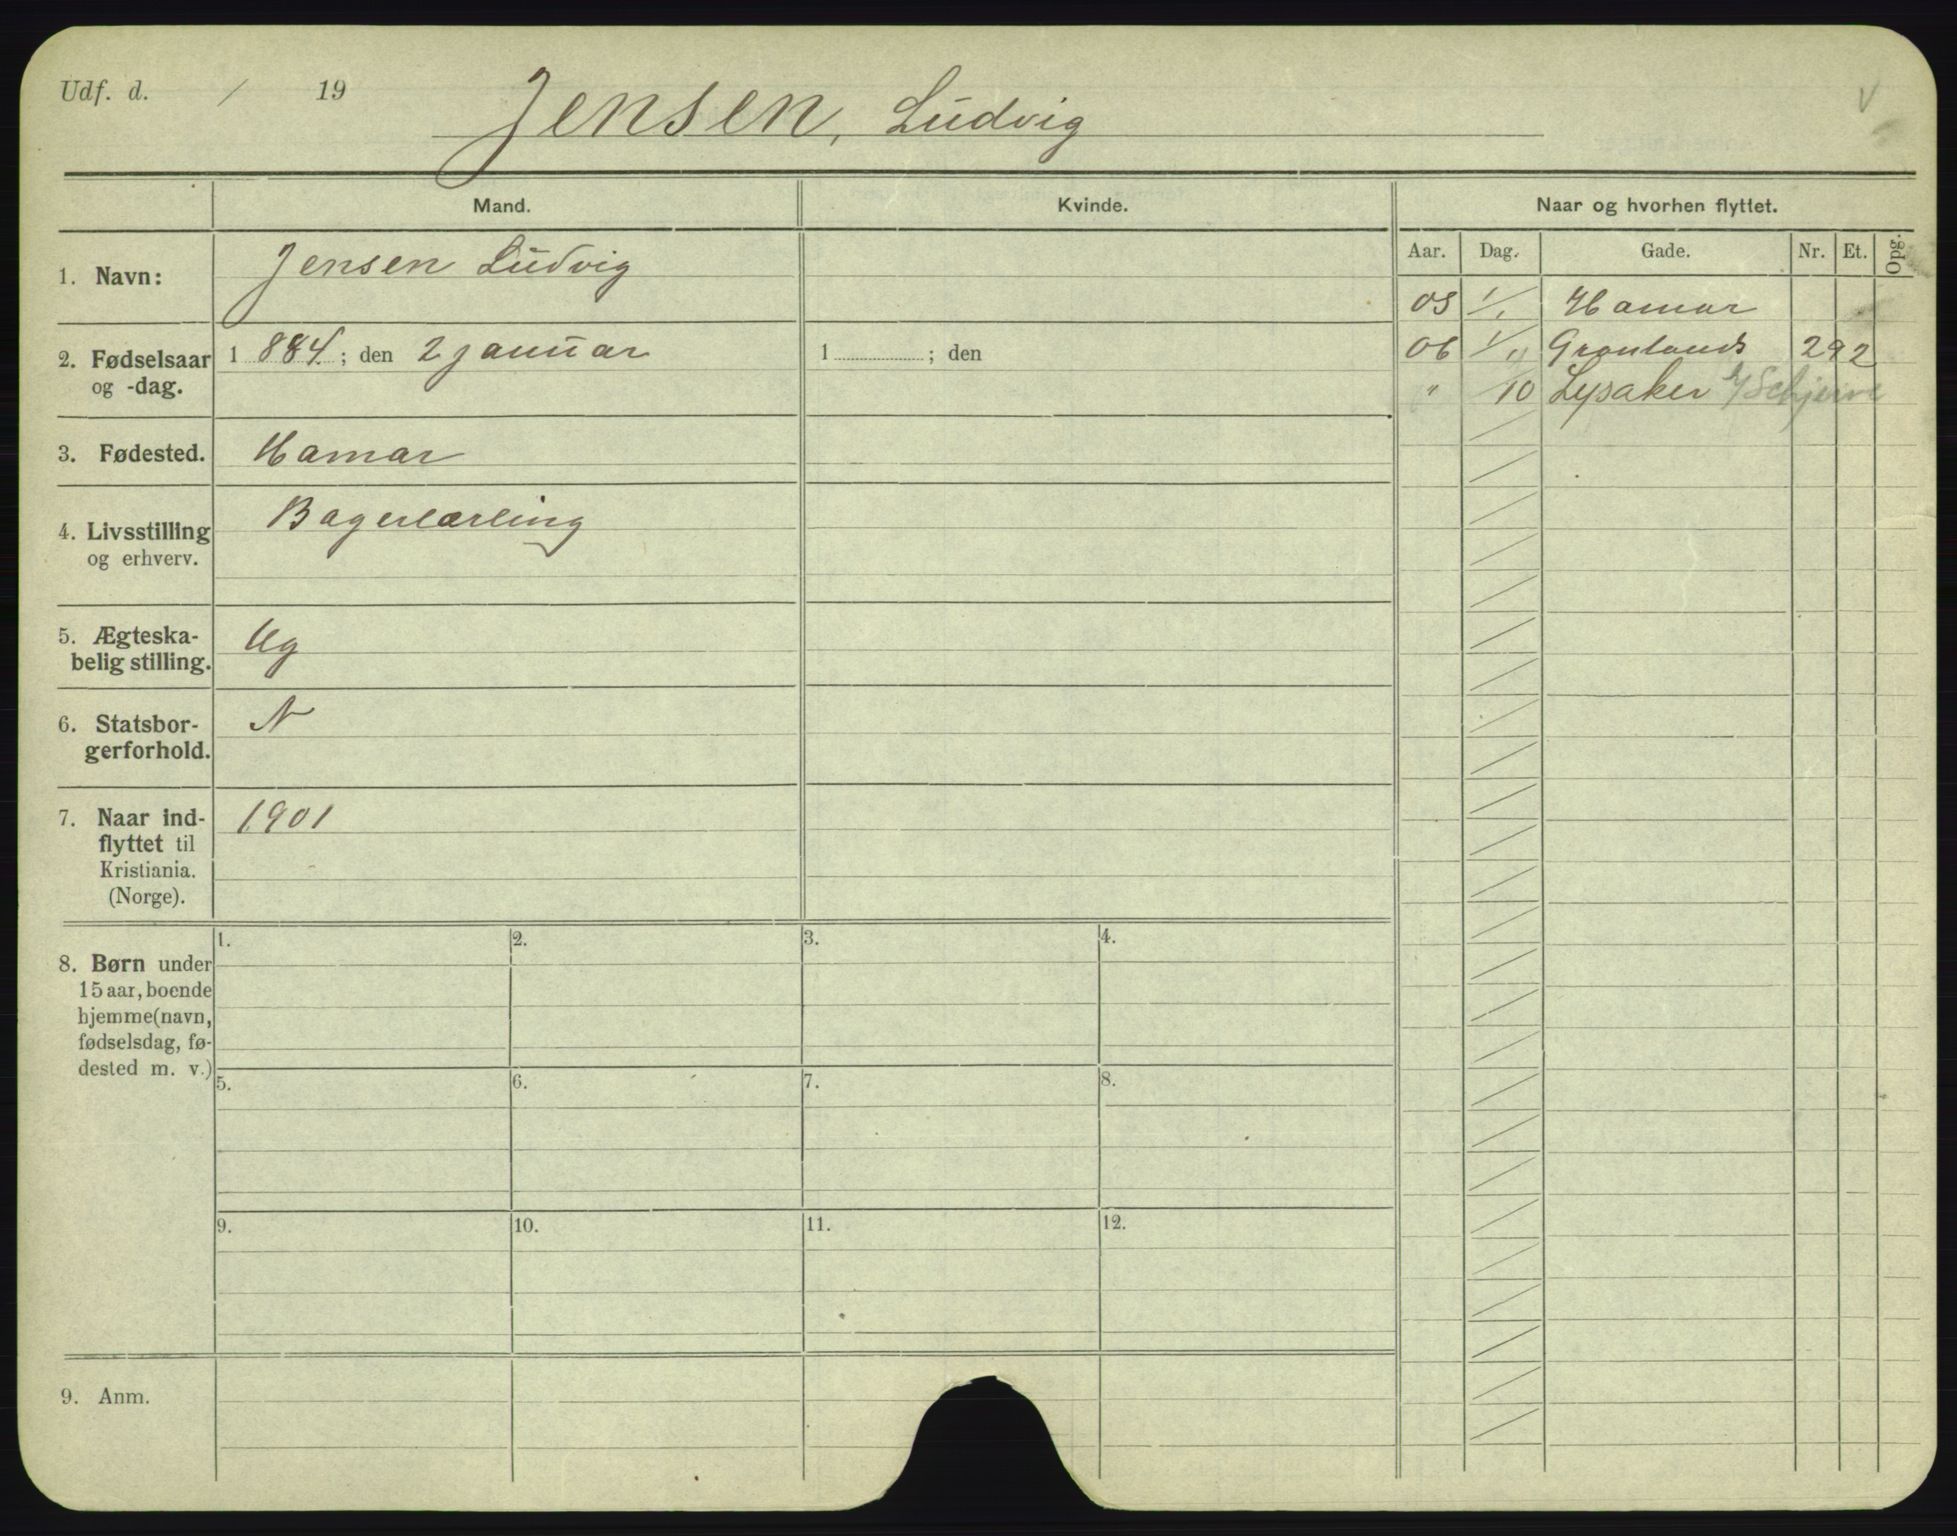 Udf. d. / 19
Jensen, Ludvig
V
Mand. Kvinde. Naar og hvorhen flyttet.
Aar. Dag. Gade. Nr. Et. Opg.
1. Navn: Jensen Ludvig
05 1/1 Hamar
2. Fødselsaar og -dag. 1 884 ; den 2 januar 1 ; den
06 1/11 Grønlands 29 2
" /10 Lysaker
3. Fødested. Hamar
4. Livsstilling og erhverv. Bagerlærling
5. Ægteska-
belig stilling. Ug
6. Statsbor-
gerforhold. N
7. Naar ind-
flyttet til
Kristiania.
(Norge). 1901
8. Børn under
15 aar, boende
hjemme (navn,
fødselsdag, fø-
dested m. v.)
1. 2. 3. 4.
5. 6. 7. 8.
9. 10. 11. 12.
9. Anm.